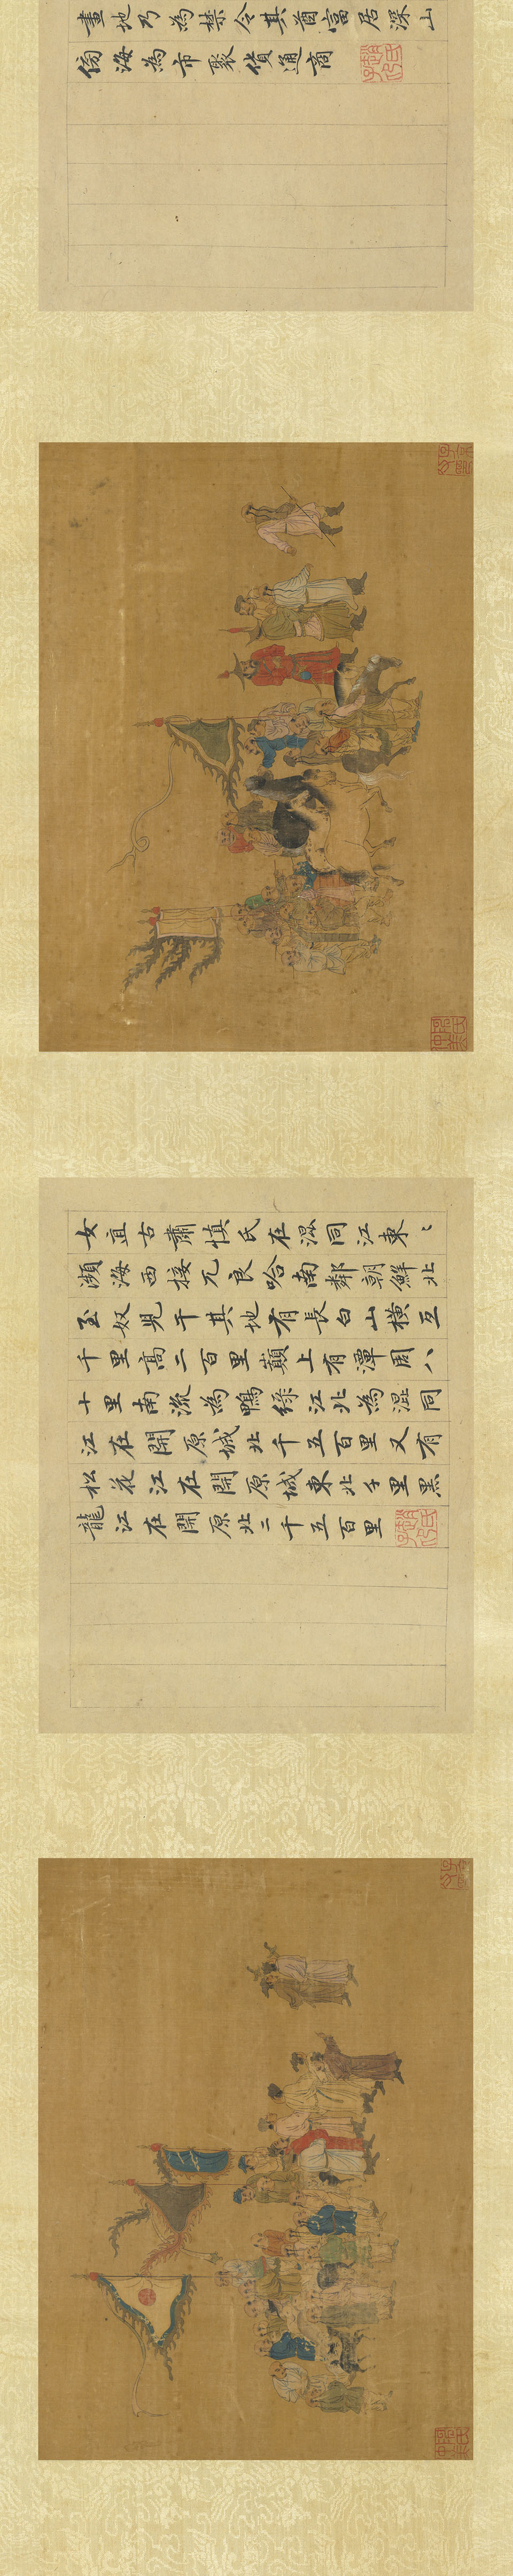 畫地乃為禁令其酋富居深山
傍海為市聚貨通商
女直古肅慎氏在混同江東〻
瀕海西接兀良哈南鄰朝鮮北
至奴児干其地有長白山橫亘
千里高二百里巔上有潭周八
十里南流為鴨綠江北為混同
江在開原城北千五百里又有
松花江在開原城東北千里黑
龍江在開原北二千五百里